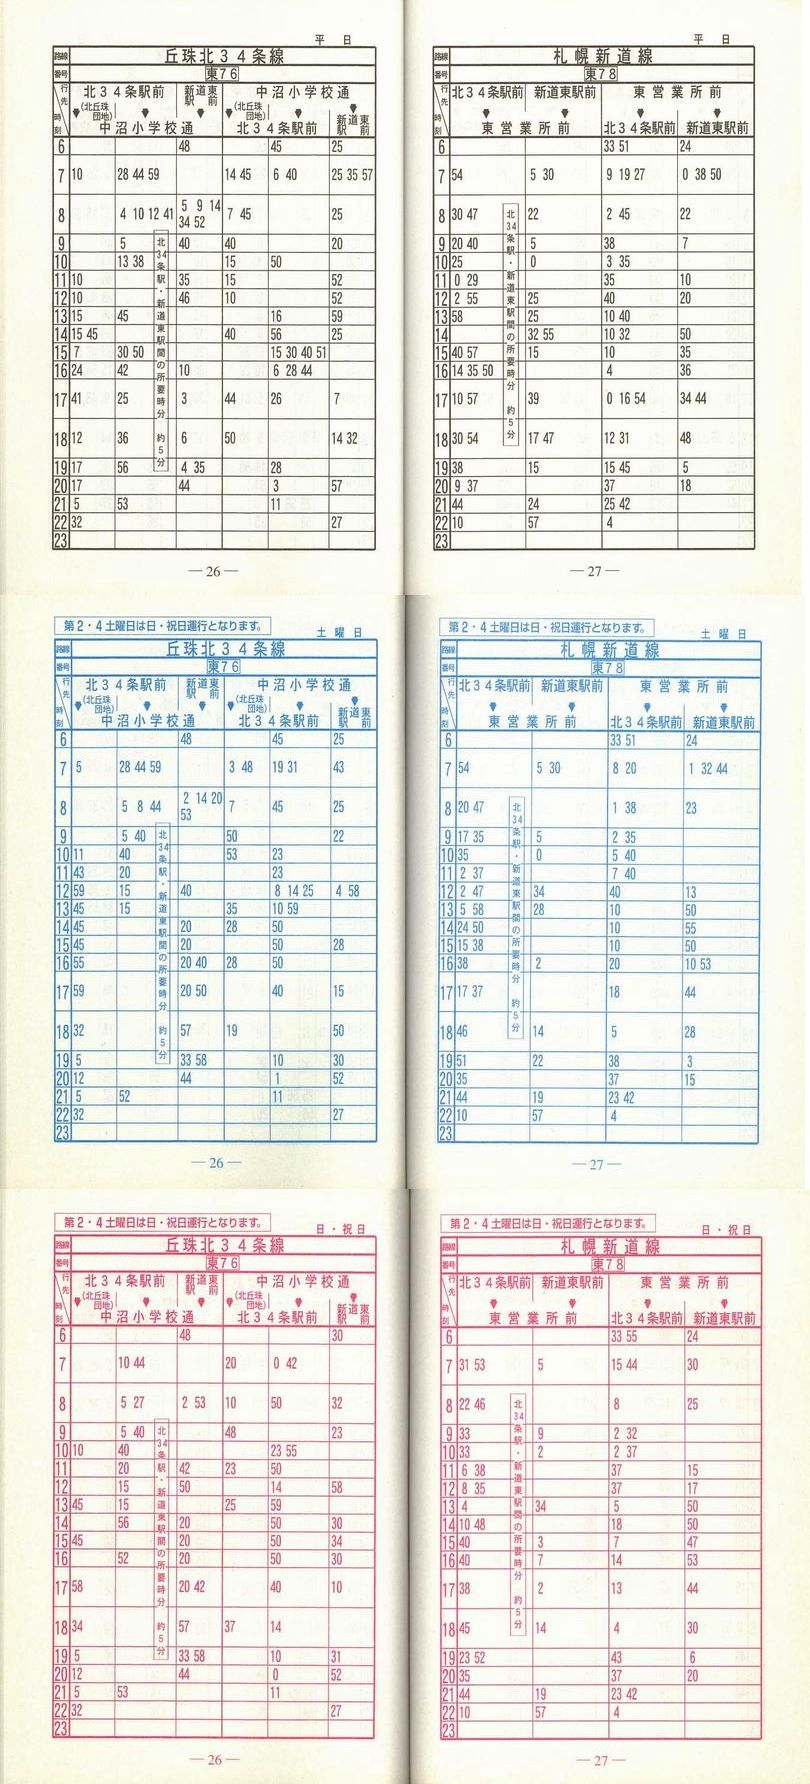 平 日
路線 丘珠北34条線
番号 東76
行先 時刻 北34条駅前 新道東駅前 中沼小学校通
(北丘珠団地) (北丘珠団地)
中沼小学校通 北34条駅前 新道東駅前
6 48 45 25
7 10 28 44 59 14 45 6 40 25 35 57
8 4 10 12 41 5 9 14 34 52 7 45 25
9 5 40 40 20
10 13 38 15 50
11 10 35 15 52
12 10 46 10 52
13 15 45 16 59
14 15 45 40 56 25
15 7 30 50 15 30 40 51
16 24 42 10 6 28 44
17 41 25 3 44 26 7
18 12 36 6 50 14 32
19 17 56 4 35 28
20 17 44 3 57
21 5 53 11
22 32 27
23
北34条駅・新道東駅間の所要時分 約5分
― 26 ―
平 日
路線 札幌新道線
番号 東78
行先 時刻 北34条駅前 新道東駅前 東営業所前
東営業所前 北34条駅前 新道東駅前
6 33 51 24
7 54 5 30 9 19 27 0 38 50
8 30 47 22 2 45 22
9 20 40 5 38 7
10 25 0 3 35
11 0 29 35 10
12 2 55 25 40 20
13 58 25 10 40
14 32 55 10 32 50
15 40 57 15 10 35
16 14 35 50 4 36
17 10 57 39 0 16 54 34 44
18 30 54 17 47 12 31 48
19 38 15 15 45 5
20 9 37 37 18
21 44 24 25 42
22 10 57 4
23
北34条駅・新道東駅間の所要時分 約5分
― 27 ―
第2・4土曜日は日・祝日運行となります。
土 曜 日
路線 丘珠北34条線
番号 東76
行先 時刻 北34条駅前 新道東駅前 中沼小学校通
(北丘珠団地) (北丘珠団地)
中沼小学校通 北34条駅前 新道東駅前
6 48 45 25
7 5 28 44 59 3 48 19 31 43
8 5 8 44 2 14 20 53 7 45 25
9 5 40 50 22
10 11 40 53 23
11 43 20 23
12 59 15 40 8 14 25 4 58
13 45 15 35 10 59
14 45 20 28 50
15 45 20 50 28
16 55 20 40 28 50
17 59 20 50 40 15
18 32 57 19 50
19 5 33 58 10 30
20 12 44 1 52
21 5 52 11
22 32 27
23
北34条駅・新道東駅間の所要時分 約5分
― 26 ―
第2・4土曜日は日・祝日運行となります。
土 曜 日
路線 札幌新道線
番号 東78
行先 時刻 北34条駅前 新道東駅前 東営業所前
東営業所前 北34条駅前 新道東駅前
6 33 51 24
7 54 5 30 8 20 1 32 44
8 20 47 1 38 23
9 17 35 5 2 35
10 35 0 5 40
11 2 37 7 40
12 2 47 34 40 13
13 5 58 28 10 50
14 24 50 10 55
15 15 38 10 50
16 38 2 20 10 53
17 17 37 18 44
18 46 14 5 28
19 51 22 38 3
20 35 37 15
21 44 19 23 42
22 10 57 4
23
北34条駅・新道東駅間の所要時分 約5分
― 27 ―
第2・4土曜日は日・祝日運行となります。
日・祝日
路線 丘珠北34条線
番号 東76
行先 時刻 北34条駅前 新道東駅前 中沼小学校通
(北丘珠団地) (北丘珠団地)
中沼小学校通 北34条駅前 新道東駅前
6 48 30
7 10 44 20 0 42
8 5 27 2 53 10 50 32
9 5 40 48 23
10 10 40 23 55
11 20 42 23 50
12 15 50 14 58
13 45 15 25 59
14 56 20 50 30
15 45 20 50 34
16 52 20 50 30
17 58 20 42 40 10
18 34 57 37 14
19 5 33 58 10 31
20 12 44 0 52
21 5 53 11
22 32 27
23
北34条駅・新道東駅間の所要時分 約5分
― 26 ―
第2・4土曜日は日・祝日運行となります。
日・祝日
路線 札幌新道線
番号 東78
行先 時刻 北34条駅前 新道東駅前 東営業所前
東営業所前 北34条駅前 新道東駅前
6 33 55 24
7 31 53 5 15 44 30
8 22 46 8 25
9 33 9 2 32
10 33 2 2 37
11 6 38 37 15
12 8 35 37 17
13 4 34 5 50
14 10 48 18 50
15 40 3 7 47
16 40 7 14 53
17 38 2 13 44
18 45 14 4 30
19 23 52 43 6
20 35 37 20
21 44 19 23 42
22 10 57 4
23
北34条駅・新道東駅間の所要時分 約5分
― 27 ―